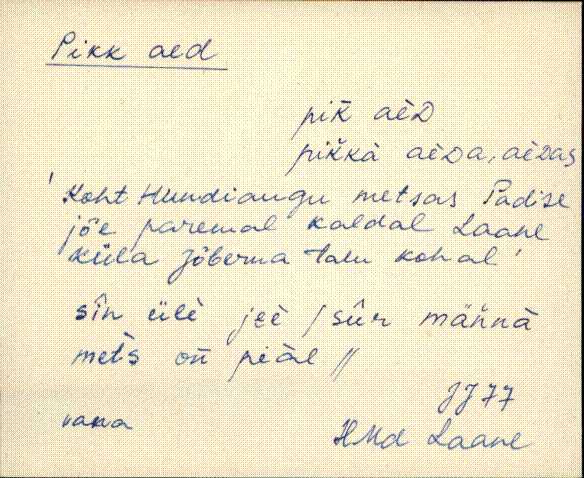 Pikk aed
pik̆ aèD
pik̆kà aèDa, aèDas
'Koht Hundiaugu metsas Padise
jõe paremal kaldal Laane
küla Jõberma talu kohal'
sîn ülè jeè / sûr män̆nà
mets on̆ peàl //
JJ 77
vana
HMd Laane